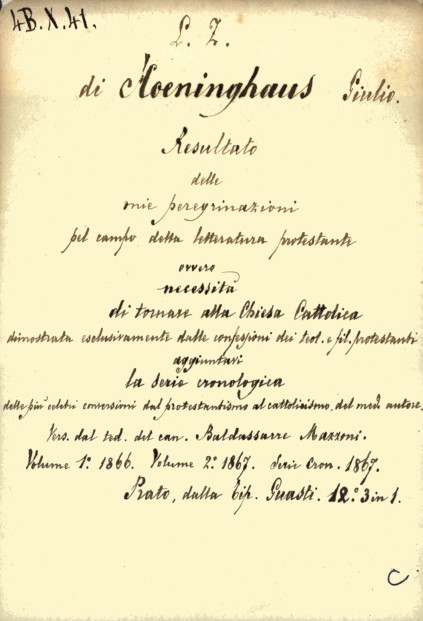 4B.X.41.
L. Z.
di Hoeninghaus Giulio.
Resultato
delle
mie peregrinazioni
pel campo della letteratura protestante
ovvero
necessità
di tornare alla Chiesa Cattolica
dimostrata esclusivamente dalle confessioni dei teol. e fil. protestanti
aggiuntavi
la serie cronologica
delle più celebri conversioni dal protestantismo al cattolicismo, del med. autore.
Vers. dal ted. del can. Baldassarre Mazzoni.
Volume 1.º 1866. Volume 2.º 1867. Serie Cron. 1867.
Prato, dalla tip. Guasti. 12.º 3 in 1.
C